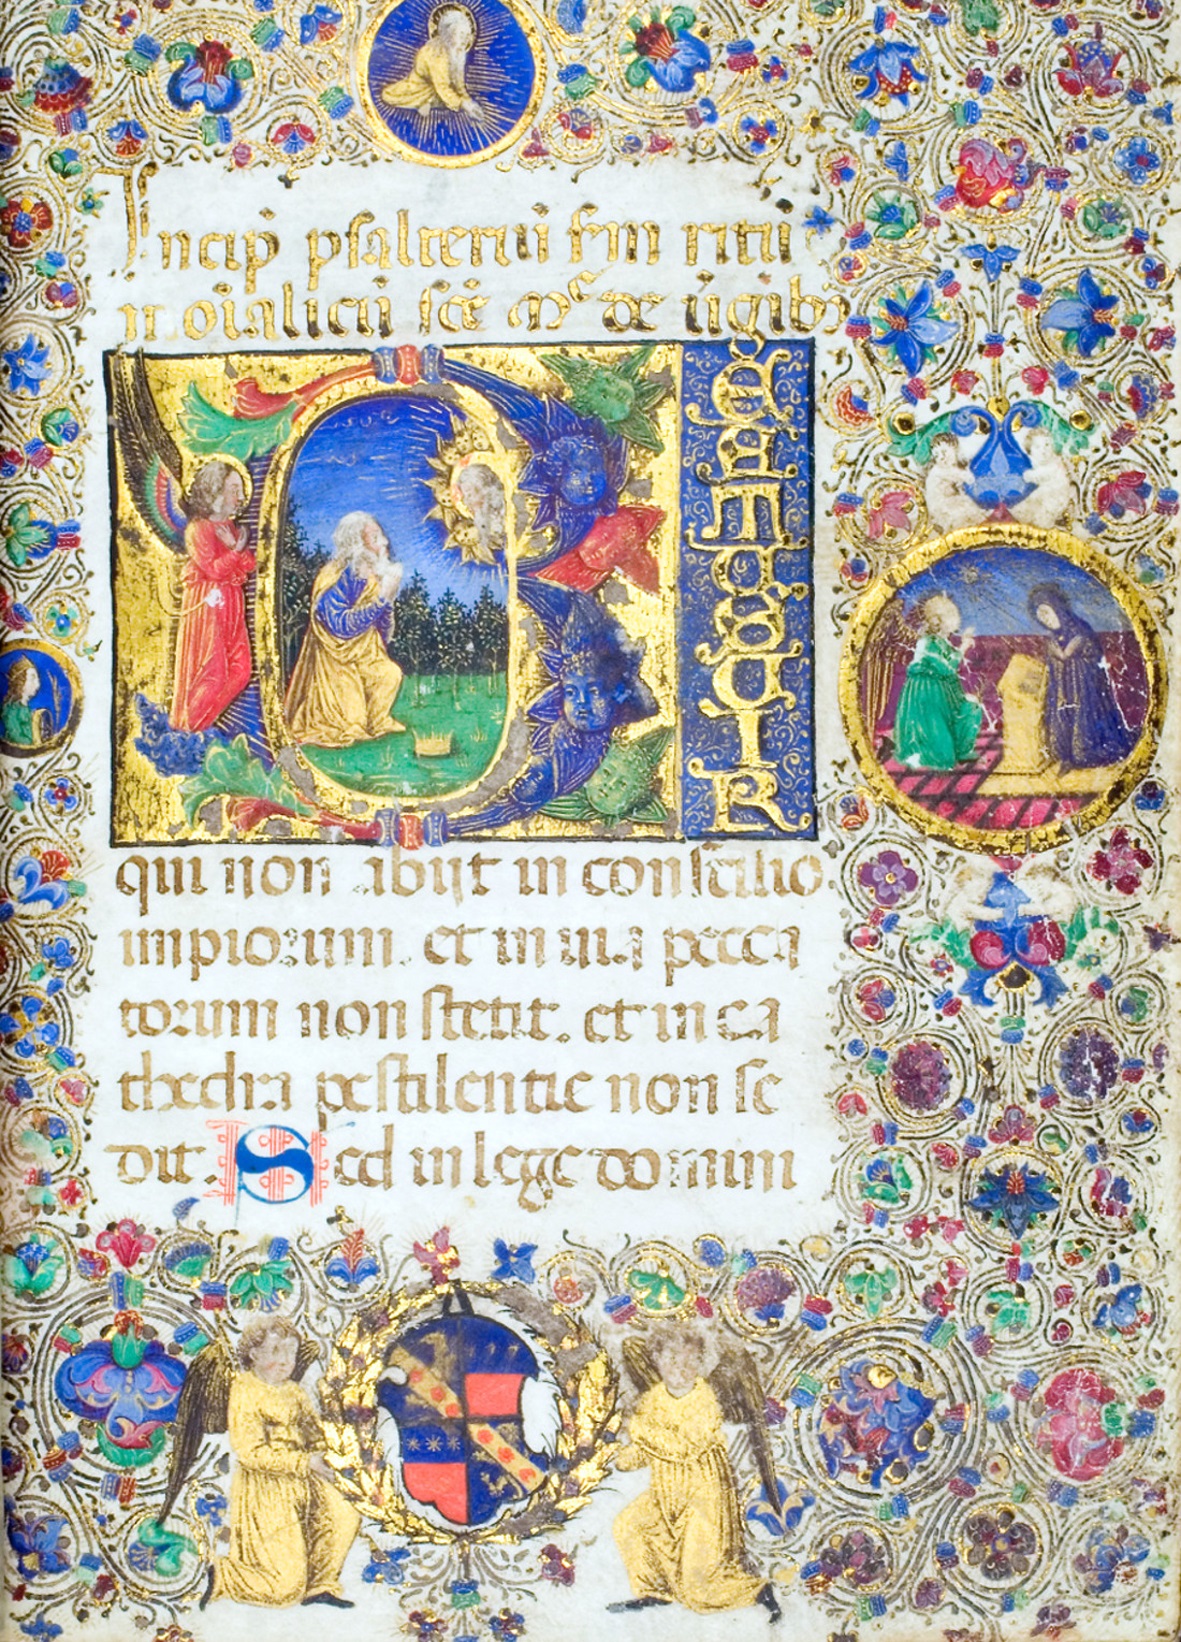 Incip psalteriũ sm ritũ
monialiũ scē Mᵉ de ũgibꝫ
BEATUS UIR
qui non abijt in consilio
impiorum. et in uia pecca
torum non stetit. et in ca
thedra pestilentie non se
dit. Sed in lege domini